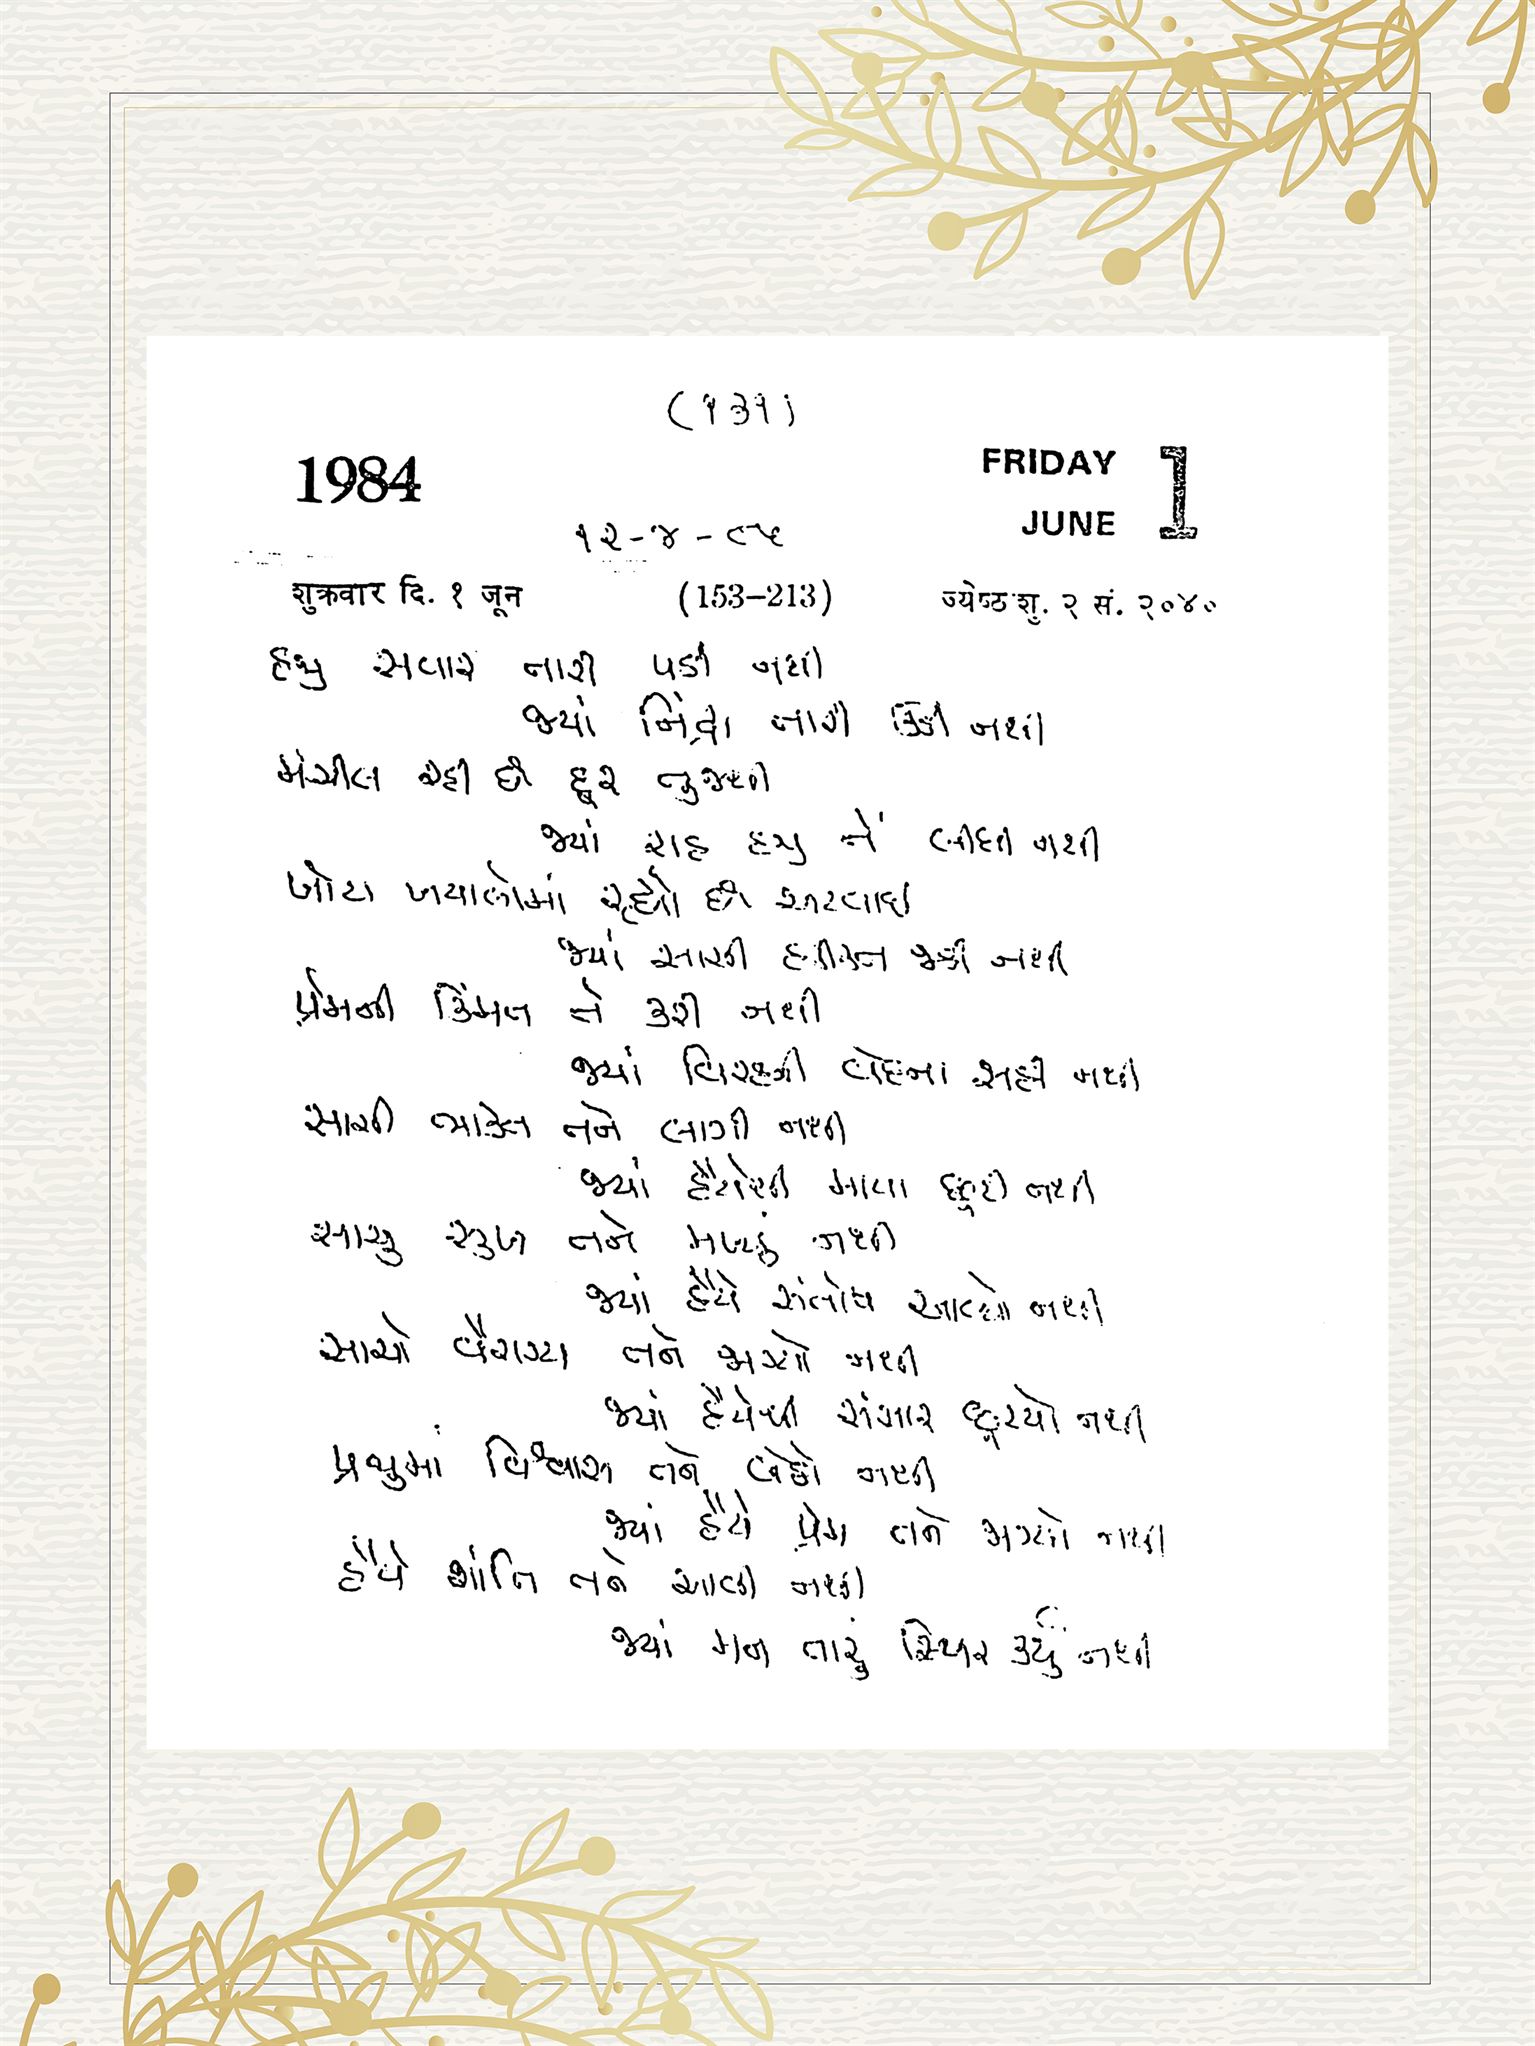 (૧૩૧)
1984
FRIDAY 1
JUNE
૧૨-૪-૮૫
शुक्रवार दि. १ जून (153-213) ज्येष्ठ शु. २ सं. २०४०
હજુ સવાર તારી પડી નથી
જ્યાં નિંદ્રા તારી ઊડી નથી
મંઝીલ રહી છે દૂર તુજથી
જ્યાં રાહ હજુ તેં લીધી નથી
ખોટા ખયાલોમાં રહ્યો છે અટવાઈ
જ્યાં સાચી હકીકત જડી નથી
પ્રેમની કિંમત તેં કરી નથી
જ્યાં વિરહની વેદના સહી નથી
સાચી ભક્તિ તને લાગી નથી
જ્યાં હૈયેથી માયા છૂટી નથી
સાચુ સુખ તને મળ્યું નથી
જ્યાં હૈયે સંતોષ આવ્યો નથી
સાચો વૈરાગ્ય તને જાગ્યો નથી
જ્યાં હૈયેથી સંસાર છૂટયો નથી
પ્રભુમાં વિશ્વાસ તને બેઠો નથી
જ્યાં હૈયે પ્રેમ તને જાગ્યો નથી
હૈયે શાંતિ તને આવી નથી
જ્યાં મન તારું સ્થિર કર્યું નથી